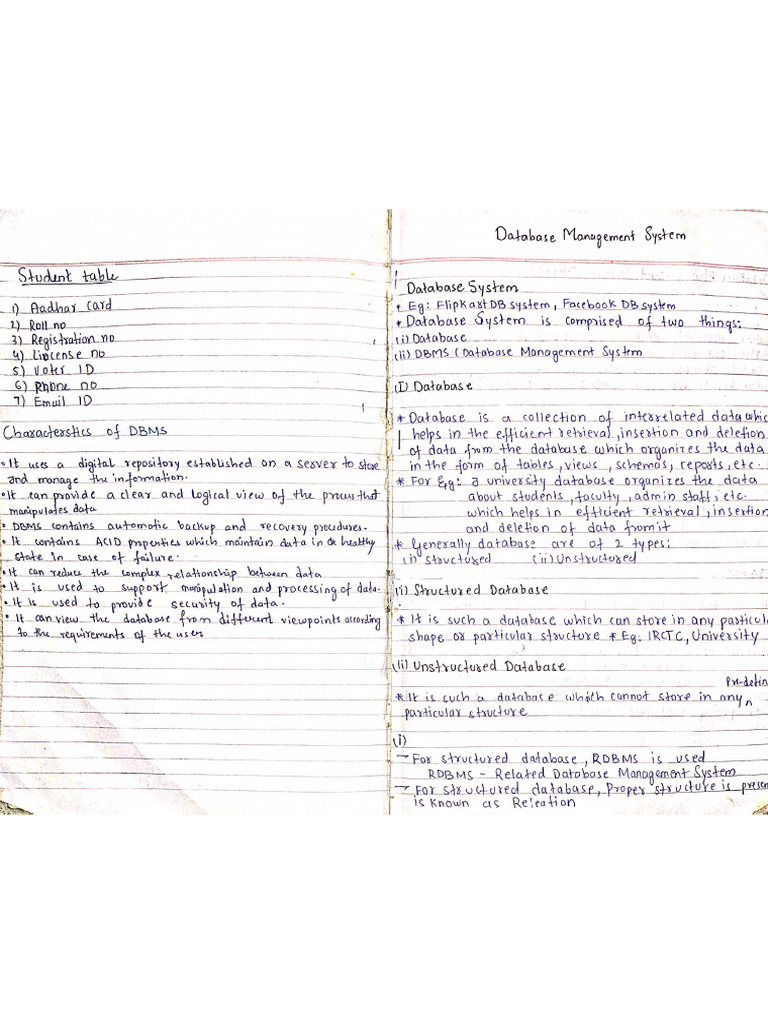 Student table
1) Aadhar card
2) Roll no
3) Registration no
4) Liscense no
5) Voter ID
6) Phone no
7) Email ID
Characterstics of DBMS
• It uses a digital repository established on a server to store
and manage the information.
• It can provide a clear and logical view of the process that
manipulates data
• DBMS contains automatic backup and recovery procedures.
• It contains ACID properties which maintain data in a healthy
state in case of failure.
• It can reduce the complex relationship between data
• It is used to support manipulation and processing of data.
• It is used to provide security of data.
• It can view the database from different viewpoints according
to the requirements of the user
Database Management System
Database System
* Eg: Flipkart DB system, Facebook DB system
* Database System is comprised of two things:
(i) Database
(ii) DBMS (Database Management System
(I) Database
* Database is a collection of interrelated data whic
helps in the efficient retrieval, insertion and deletion
of data from the database which organizes the data
in the form of tables, views, schemas, reports, etc.
* For Eg: a university database organizes the data
about students, faculty, admin staff, etc.
which helps in efficient retrieval, insertion
and deletion of data from it
* Generally database are of 2 types:
(i) Structured (ii) Unstructured
(i) Structured Database
* It is such a database which can store in any particul
shape or particular structure * Eg: IRCTC, University
(ii) Unstructured Database
Pre-defin
* It is such a database which cannot store in any
particular structure
(i)
→ For structured database, RDBMS is used
RDBMS - Related Database Management System
→ For structured database, Proper structure is presen
is known as Releation